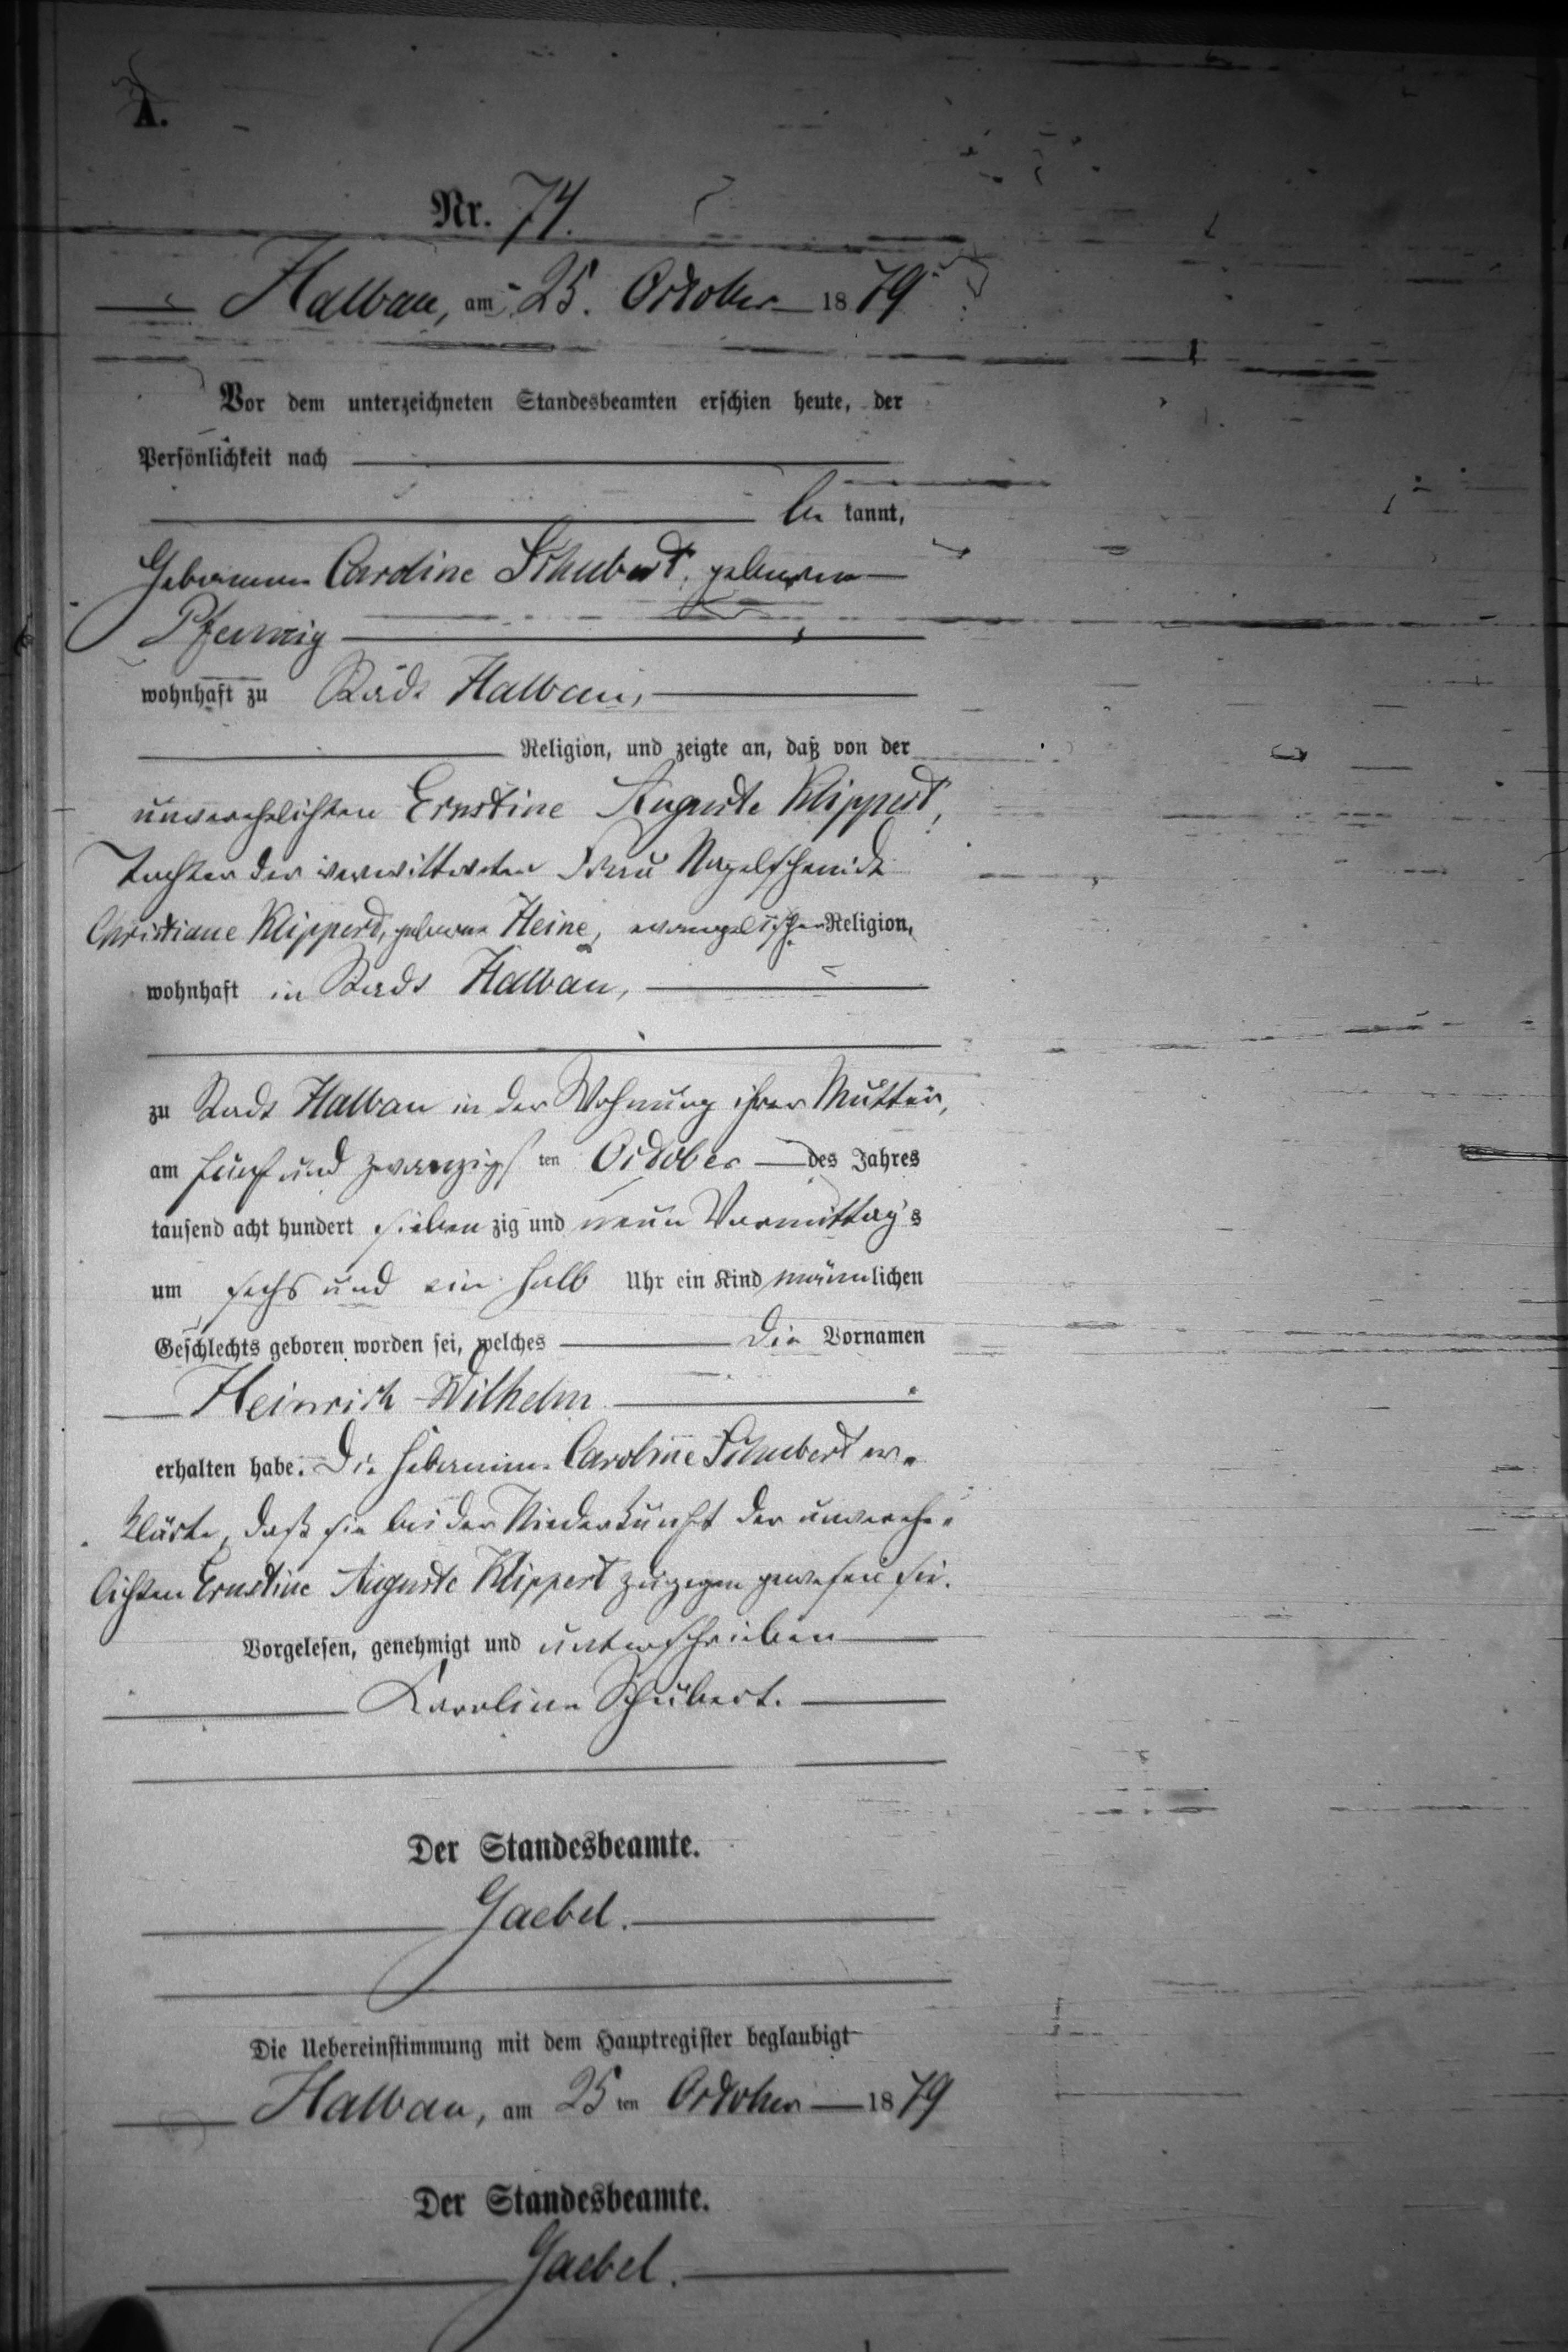 A.
Nr. 74.
Halbau, am 25. October 1879
Vor dem unterzeichneten Standesbeamten erschien heute, der
Persönlichkeit nach
be kannt,
Hebamme Caroline Schubert, geborene
Pfennig
wohnhaft zu Stadt Halbau,
Religion, und zeigte an, daß von der
unverehelichten Ernstine Auguste Klippert,
Tochter der verwittweten Frau Nagelschmidt
Christiane Klippert, geborene Heine, evangelischer Religion,
wohnhaft in Stadt Halbau,
zu Stadt Halbau in der Wohnung ihrer Mutter,
am fünf und zwanzigsten October des Jahres
tausend acht hundert siebenzig und neun Vormittags
um sechs und ein halb Uhr ein Kind männlichen
Geschlechts geboren worden sei, welches die Vornamen
Heinrich Wilhelm
erhalten habe. Die Hebamme Caroline Schubert er-
klärte, daß sie bei der Niederkunft der unverehe-
lichten Ernstine Auguste Klippert zugegen gewesen sei.
Vorgelesen, genehmigt und unterschrieben
Karoline Schubert.
Der Standesbeamte.
Gaebel.
Die Uebereinstimmung mit dem Hauptregister beglaubigt
Halbau, am 25ten October 1879
Der Standesbeamte.
Gaebel.